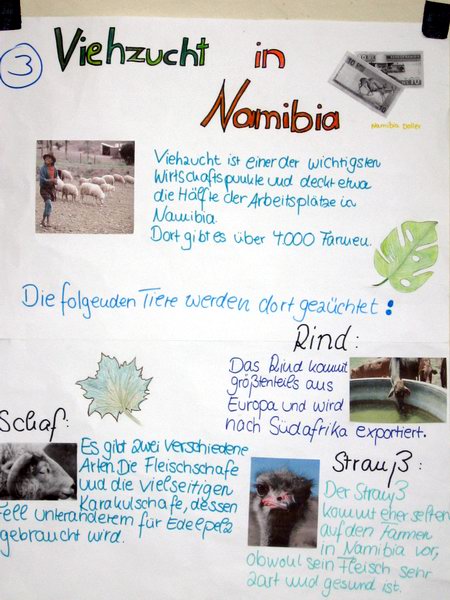 3
Viehzucht in
Namibia
Namibia Doller
Viehzucht ist einer der wichtigsten
Wirtschaftspunkte und deckt etwa
die Hälfte der Arbeitsplätze in
Namibia.
Dort gibt es über 4000 Farmen.
Die folgenden Tiere werden dort gezüchtet:
Rind:
Das Rind kommt
größtenteils aus
Europa und wird
nach Südafrika exportiert.
Schaf:
Es gibt zwei verschiedene
Arten. Die Fleischschafe
und die vielseitigen
Karakulschafe, dessen
Fell unteranderem für Edelpelz
gebraucht wird.
Strauß:
Der Strauß
kommt eher selten
auf den Farmen
in Namibia vor,
obwohl sein Fleisch sehr
zart und gesund ist.